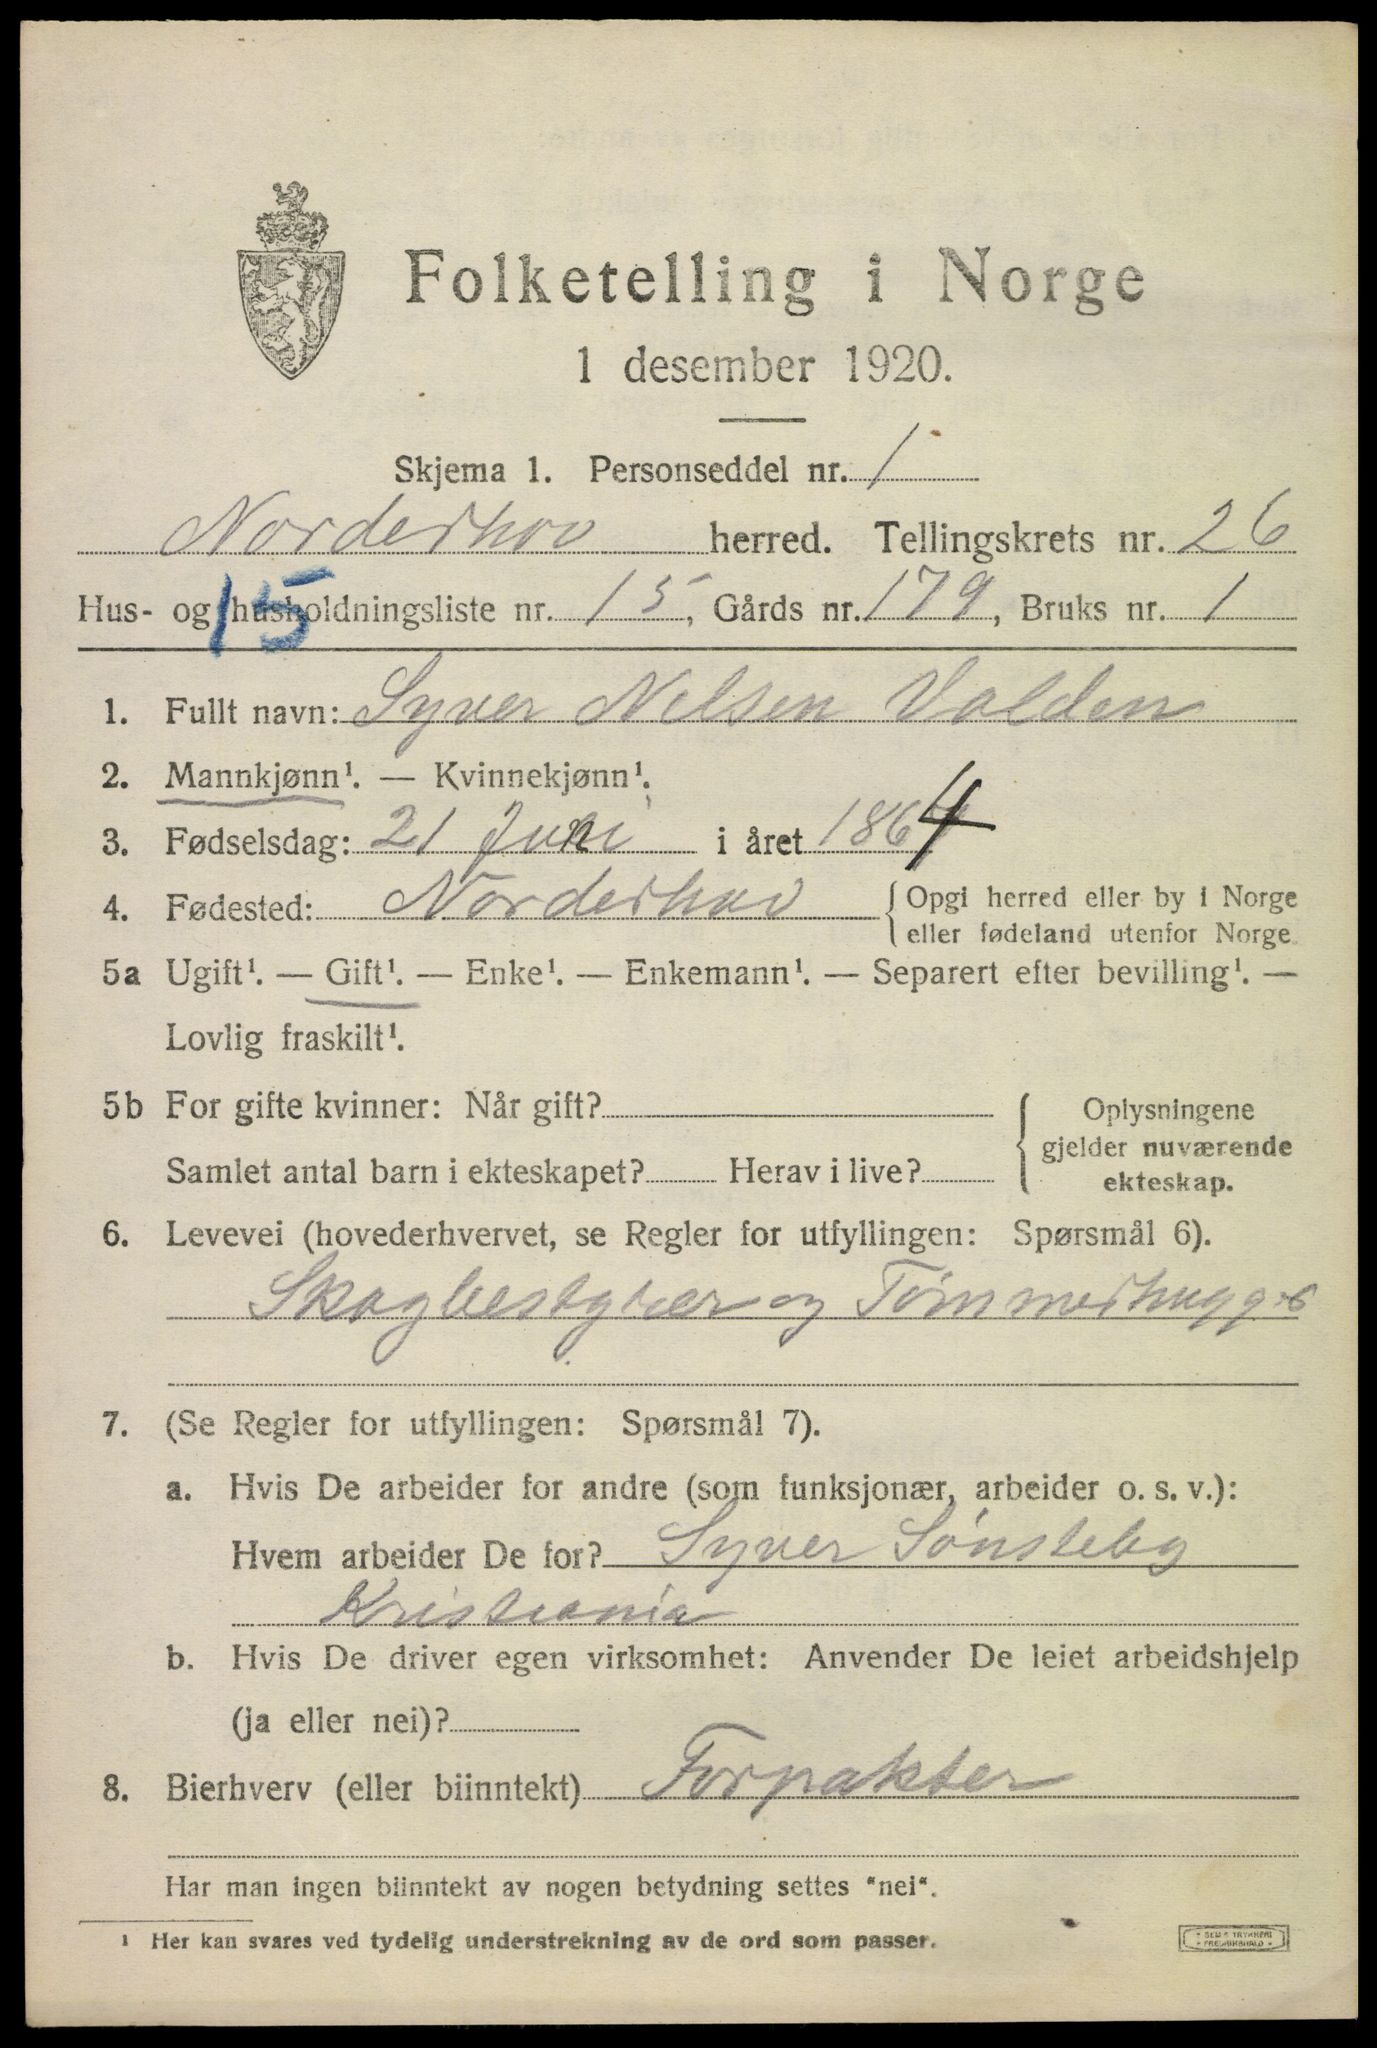 Folketelling i Norge
1 desember 1920.
Skjema 1. Personseddel nr. 1
Norderhov herred. Tellingskrets nr. 26
Hus- og husholdningsliste nr. 15, Gårds nr. 179, Bruks nr. 1
15
1. Fullt navn: Syver Nelsen Valden
2. Mannkjønn¹. — Kvinnekjønn¹.
3. Fødselsdag: 21 Juni i året 1864
4. Fødested: Norderhov { Opgi herred eller by i Norge
eller fødeland utenfor Norge
5a Ugift¹. — Gift¹. — Enke¹. — Enkemann¹. — Separert efter bevilling¹. —
Lovlig fraskilt¹.
5b For gifte kvinner: Når gift? { Oplysningene
gjelder nuværende
Samlet antal barn i ekteskapet? Herav i live?
ekteskap.
6. Levevei (hovederhvervet, se Regler for utfyllingen: Spørsmål 6).
Skogbestyrer og Tømmerhugger
7. (Se Regler for utfyllingen: Spørsmål 7).
a. Hvis De arbeider for andre (som funksjonær, arbeider o. s. v.):
Hvem arbeider De for? Syver Sønsteby
Kristiania
b. Hvis De driver egen virksomhet: Anvender De leiet arbeidshjelp
(ja eller nei)?
8. Bierhverv (eller biinntekt) Forpakter
Har man ingen biinntekt av nogen betydning settes "nei".
¹ Her kan svares ved tydelig understrekning av de ord som passer.